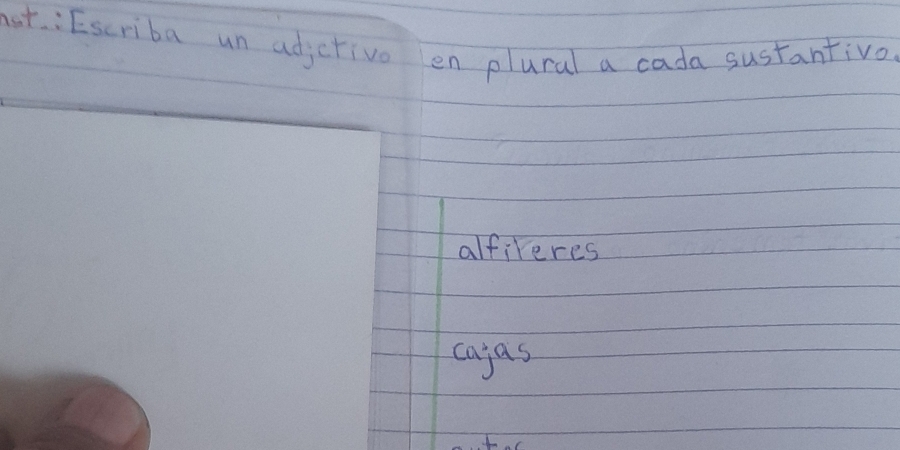 nst.: Escriba un adjetivo en plural a cada sustantivo.
alfileres
cajas